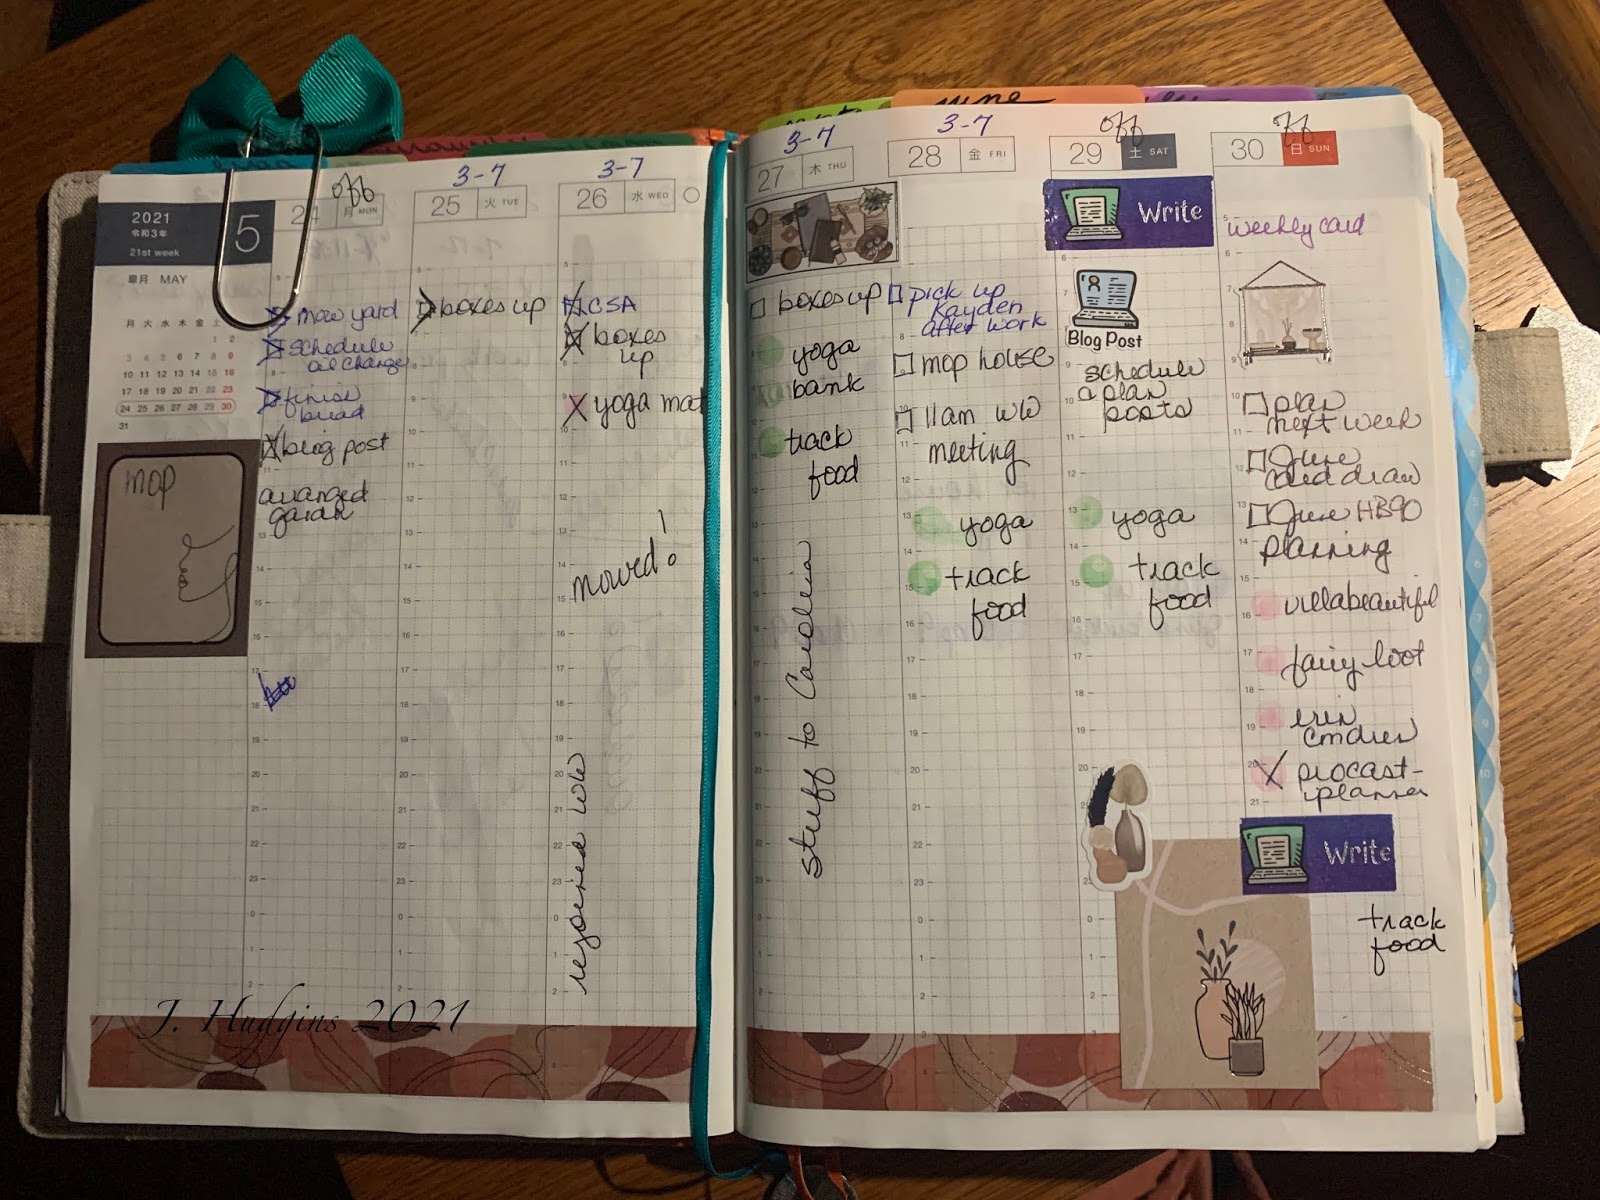 2021
令和3年
21st week
5
皐月 MAY
月 火 水 木 金 土 日
1 2
3 4 5 6 7 8 9
10 11 12 13 14 15 16
17 18 19 20 21 22 23
24 25 26 27 28 29 30
31
mop
off
24 月 MON
mow yard
schedule
oil change
finish
blog post
arranged
garden
3-7
25 火 TUE
boxes up
3-7
26 水 WED
CSA
boxes
up
yoga mat
mowed!
rejoined ww
J. Hudgins 2021
3-7
27 木 THU
boxes up
yoga
bank
track
food
stuff to Carolina
June
3-7
28 金 FRI
pick up
Kayden
after work
mop house
11am ww
meeting
yoga
track
food
off
29 土 SAT
Write
Blog Post
schedule
a plan
posts
yoga
track
food
off
30 日 SUN
weekly card
plan
next week
June
card draw
June HB90
planning
villabeautiful
fairy loot
erin
condren
procast-
iplanner
Write
track
food